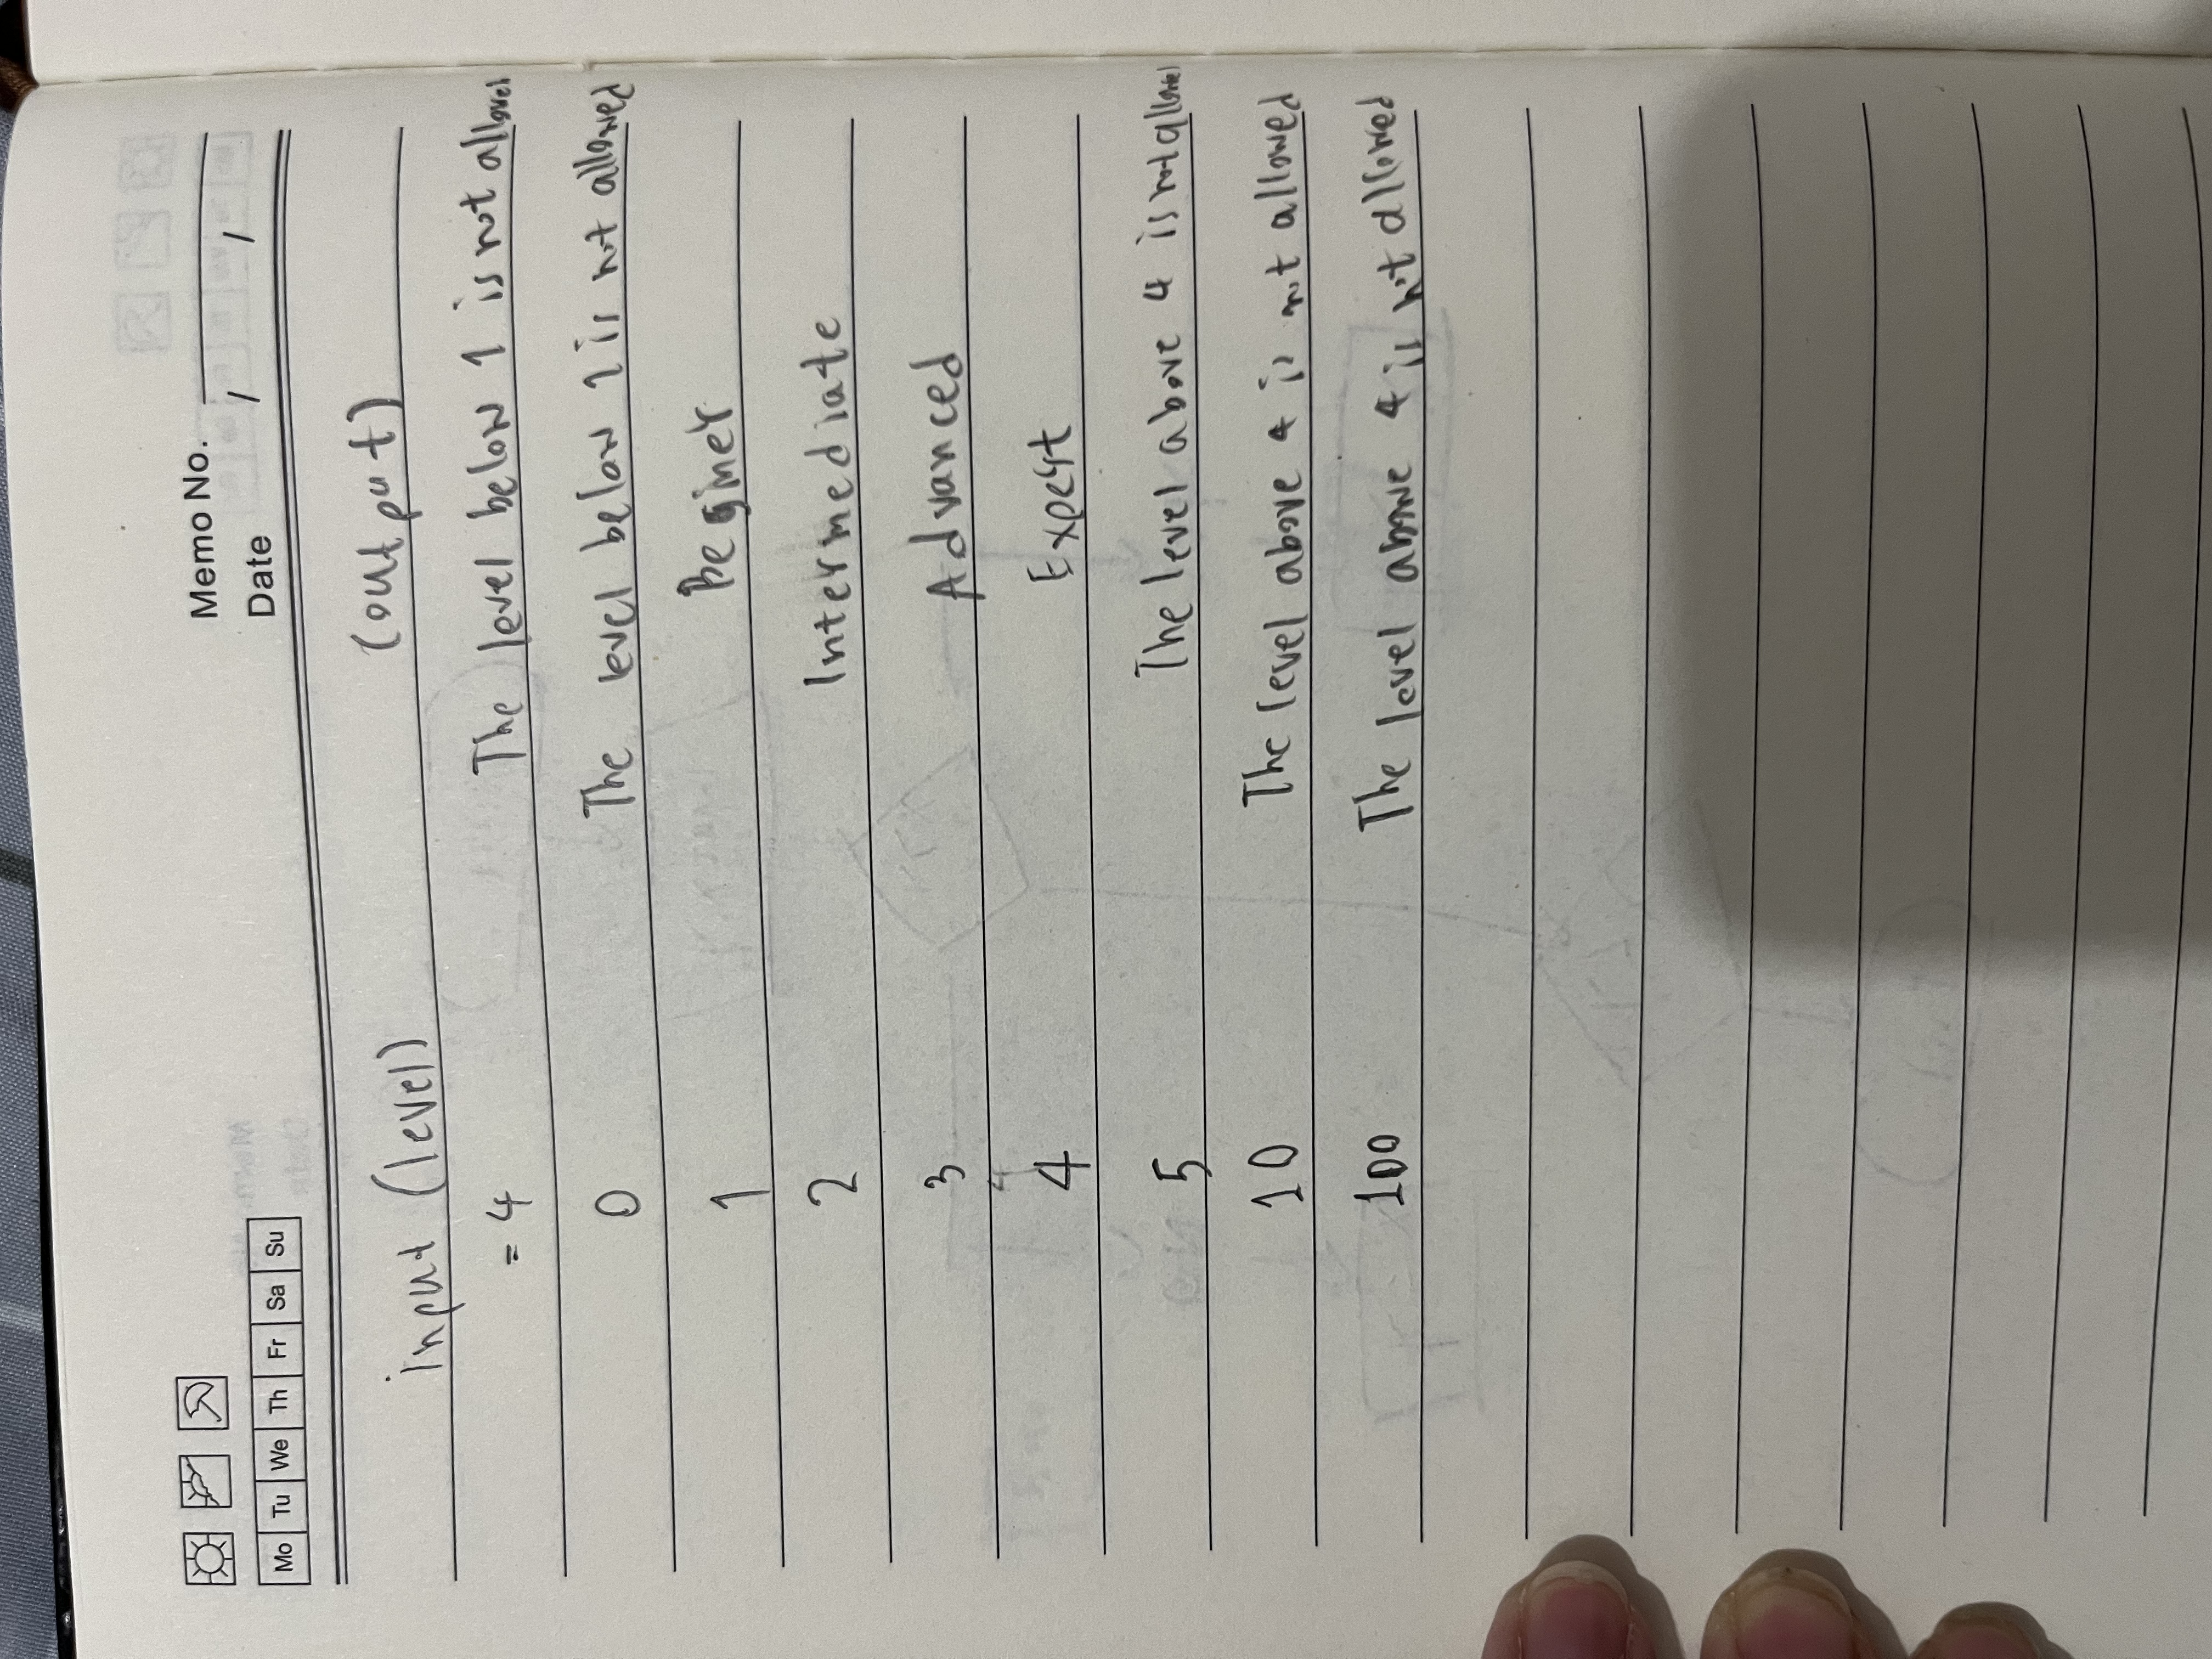 Memo No.
Date / /
Mo Tu We Th Fr Sa Su
input (level) (output)
= 4 The level below 1 is not allowed
0 The level below 1 is not allowed
1 Beginer
2 Intermediate
3 Advanced
4
4 Expert
5 The level above 4 is not allowed
10 The level above 4 is not allowed
100 The level above 4 is not allowed